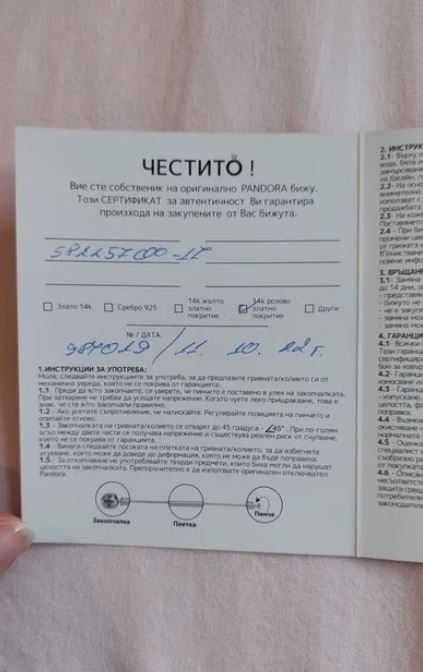 ЧЕСТИТО !
Вие сте собственик на оригинално PANDORA бижу.
Този СЕРТИФИКАТ за автентичност Ви гарантира
произхода на закупените от Вас бижута.
582257C00-17
Злато 14k
Сребро 925
14k жълто златно покритие
14k розово златно покритие
Други
№ / ДАТА:
987019 / 11. 10. 22 г.
1.ИНСТРУКЦИИ ЗА УПОТРЕБА:
Моля, следвайте инструкциите за употреба, за да предпазите гривната/колието си от
механична увреда, която не се покрива от гаранцията.
1.1 - Преди да я/го закопчаете, се уверете, че пинчето е поставено в улея на закопчалката.
При затваряне не трябва да усещате напрежение. Когато чуете леко прищракване, това е
знак, че сте я/го закопчали правилно.
1.2 - Ако усетите съпротивление, не натискайте. Регулирайте позицията на пинчето и
опитайте отново.
1.3 - Закопчалката на гривната/колието се отварят до 45 градуса - 45°. При по-голям
ъгъл между двете части се получава напрежение и съществува реален риск от счупване,
които не се покрива от гаранцията.
1.4 - Винаги следвайте посоката на плетката на гривната/колието, за да избегнете
усукване, което може да доведе до деформация, която не може да бъде поправена.
1.5 - За откопчаване не употребявайте твърди предмети, които биха могли да нарушат
целостта на закопчалката. Препоръчително е да използвате оригинален отключвател
Pandora.
Закопчалка
Плетка
Пинче
2. ИНСТРУК
3. ВРЪЩАН
4. ГАРАНЦИ